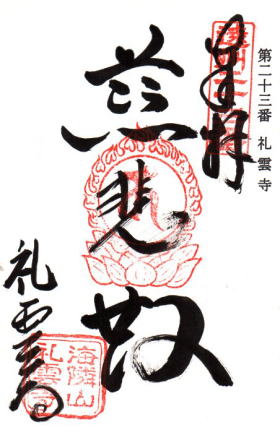 第二十三番 礼雲寺
奉拝
慈悲殿
礼雲寺
海隣山
礼雲寺